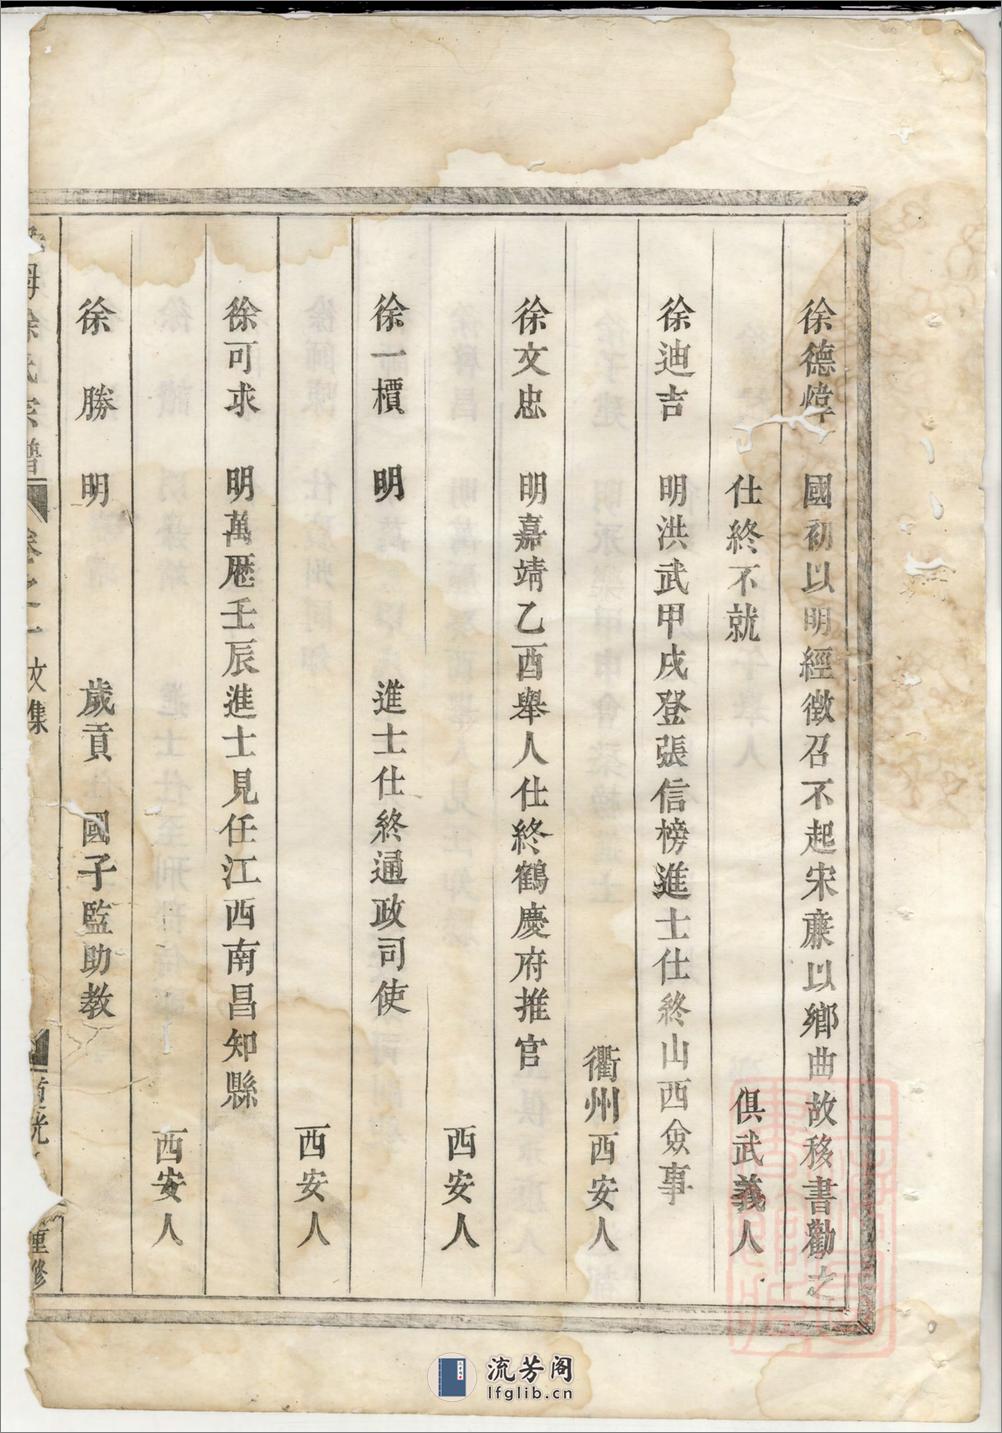 徐德㬓 國初以明經徵召不起宋亷以鄉曲故移書勸之
仕終不就 俱武義人
徐迪吉 明洪武甲戌登張信榜進士仕終山西僉事
衢州西安人
徐文忠 明嘉靖乙酉舉人仕終鶴慶府推官
西安人
徐一檟 明 進士仕終通政司使
西安人
徐可求 明萬歷壬辰進士見任江西南昌知縣
西安人
徐勝 明 歲貢 國子監助教
海徐氏宗譜 卷之一 文集 重修
流芳阁
lfglib.cn